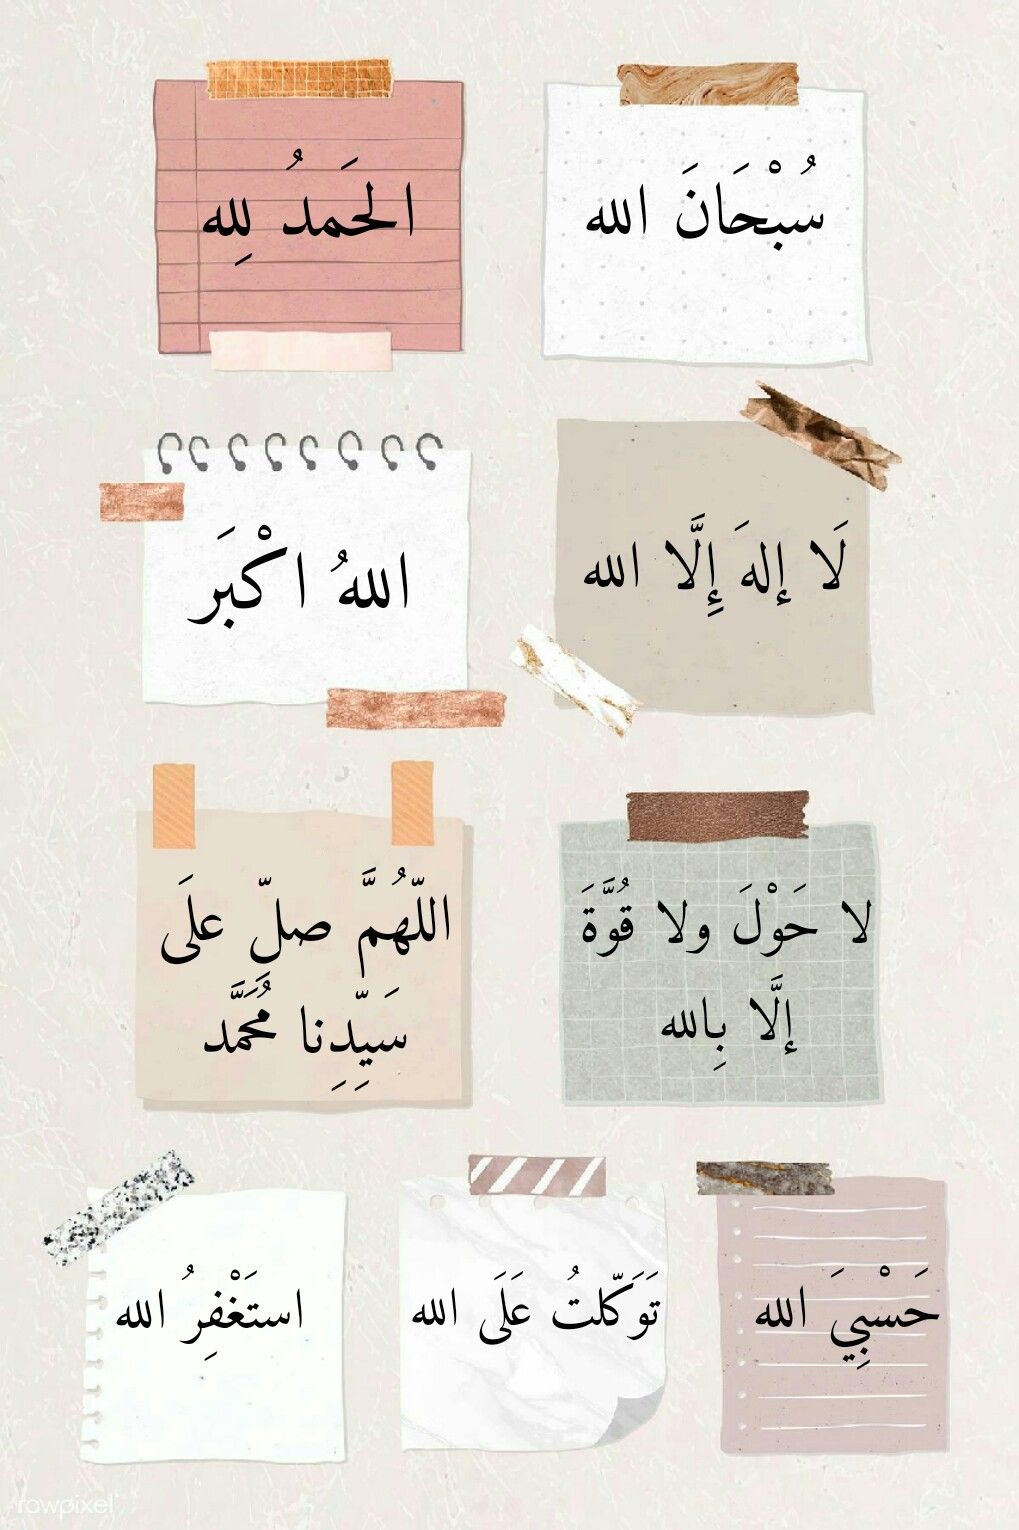 سُبْحَانَ الله
الحَمدُ لِله
لَا إلهَ إِلَّا الله
اللهُ اكْبَر
لا حَوْلَ ولا قُوَّةَ
إلَّا بِالله
اللّهُمَّ صلِّ علَى
سَيِّدِنا مُحَمَّد
حَسْبِيَ الله
تَوَكّلتُ عَلَى الله
استَغْفِرُ الله
rawpixel